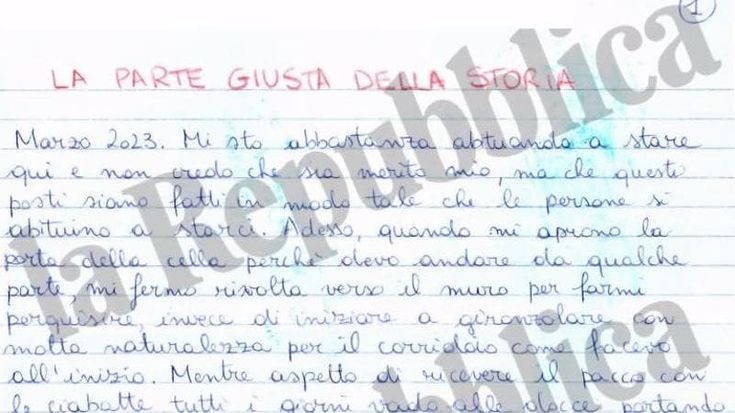 1
LA PARTE GIUSTA DELLA STORIA
Marzo 2023. Mi sto abbastanza abituando a stare
qui e non credo che sia merito mio, ma che questi
posti siano fatti in modo tale che le persone si
abituino a starci. Adesso, quando mi aprono la
porta della cella perchè devo andare da qualche
parte, mi fermo rivolta verso il muro per farmi
perquisire, invece di iniziare a gironzolare con
molta naturalezza per il corridoio come facevo
all'inizio. Mentre aspetto di ricevere il pacco con
le ciabatte tutti i giorni vado alle docce portando
la Repubblica
la Repubblica